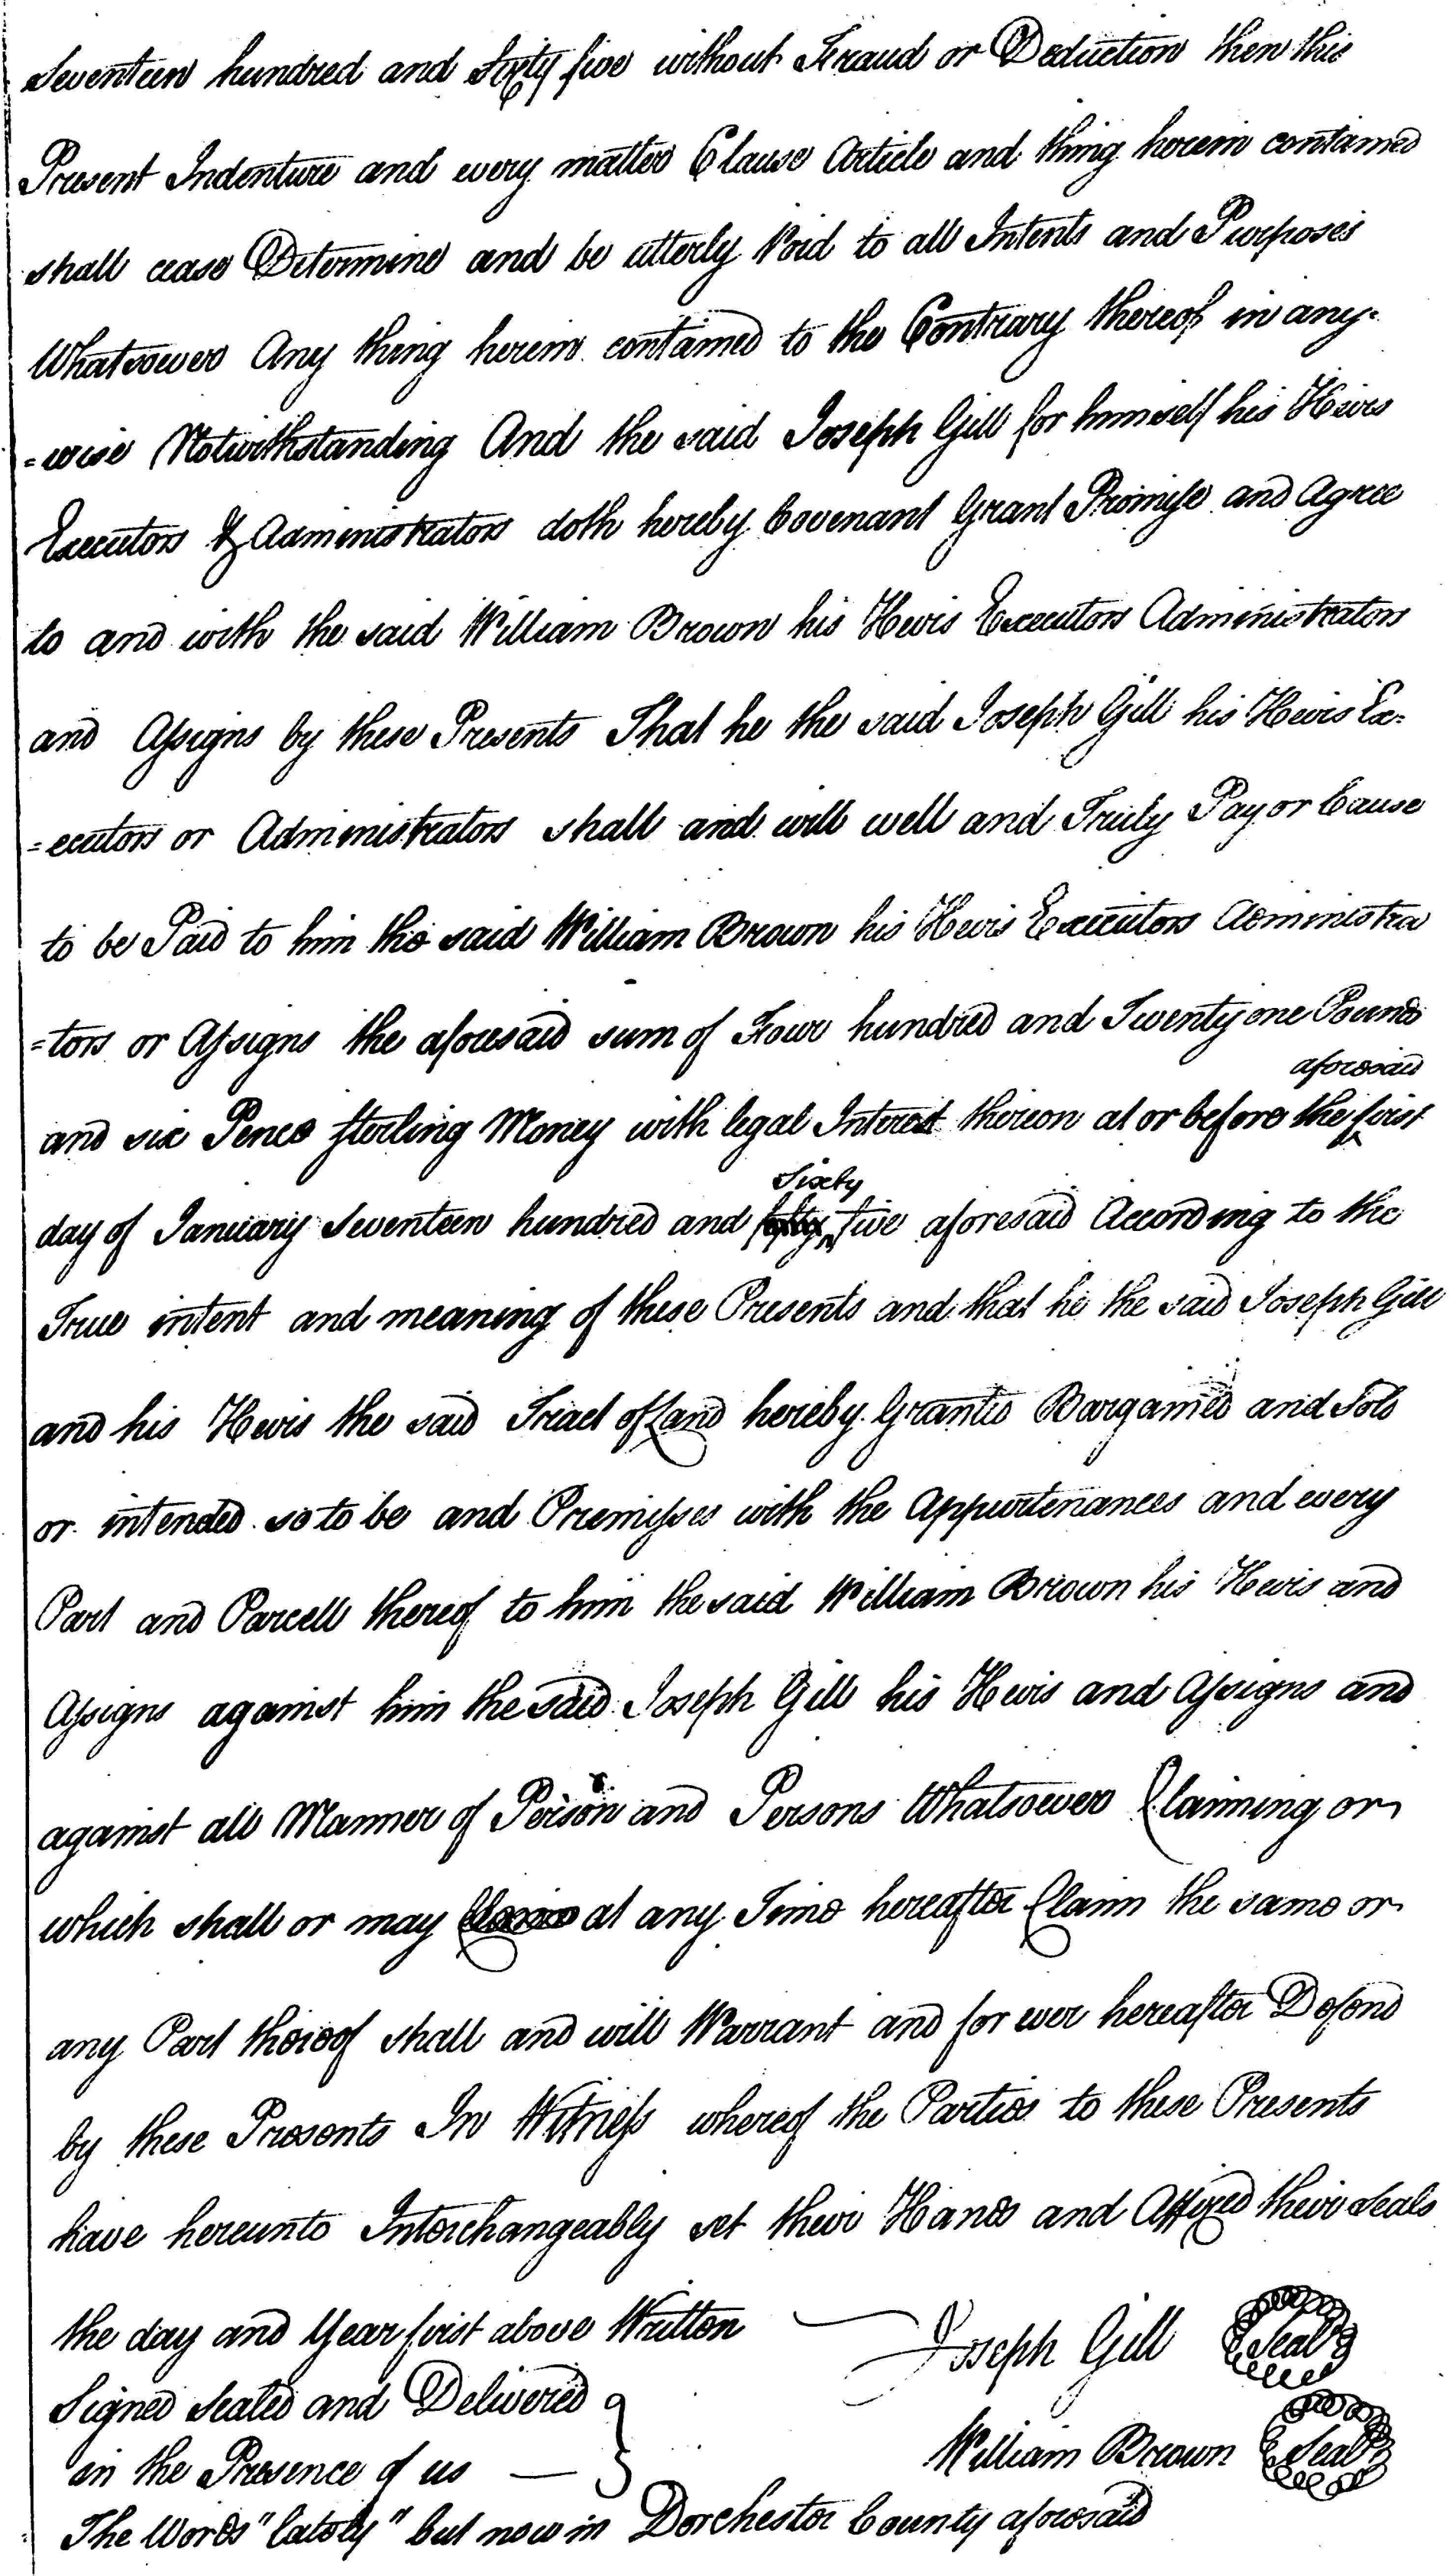 Seventeen hundred and Sixty five without Fraud or Deduction then this
Present Indenture and every matter Clause Article and thing herein contained
shall cease Determine and be utterly Void to all Intents and Purposes
Whatsoever Any thing herein contained to the Contrary thereof in any=
=wise Notwithstanding And the said Joseph Gill for himself his Heirs
Executors & Administrators doth hereby Covenant Grant Promise and Agree
to and with the said William Brown his Heirs Executors Administrators
and Assigns by these Presents That he the said Joseph Gill his Heirs Ex=
=ecutors or Administrators shall and will well and Truly Pay or Cause
to be Paid to him the said William Brown his Heirs Executors Administra
=tors or Assigns the aforesaid sum of Four hundred and Twenty one Pounds
aforesaid
and six Pence sterling Money with legal Interest thereon at or before the ^ first
Sixty
day of January Seventeen hundred and fifty ^ five aforesaid According to the
True intent and meaning of these Presents and that he the said Joseph Gill
and his Heirs the said Tract of Land hereby Granted Bargained and Sold
or intended so to be and Premisses with the Appurtenances and every
Part and Parcell thereof to him the said William Brown his Heirs and
Assigns against him the said Joseph Gill his Heirs and Assigns and
against all Manner of Person and Persons Whatsoever Claiming or
which shall or may Claim at any Time hereafter Claim the same or
any Part thereof shall and will Warrant and for ever hereafter Defend
by these Presents In Witness whereof the Parties to these Presents
have hereunto Interchangeably set their Hands and Affixed their Seals
the day and Year first above Written Joseph Gill Seal
Signed Sealed and Delivered }
in the Presence of us — William Brown Seal
The Words "lately" but now in Dorchester County aforesaid